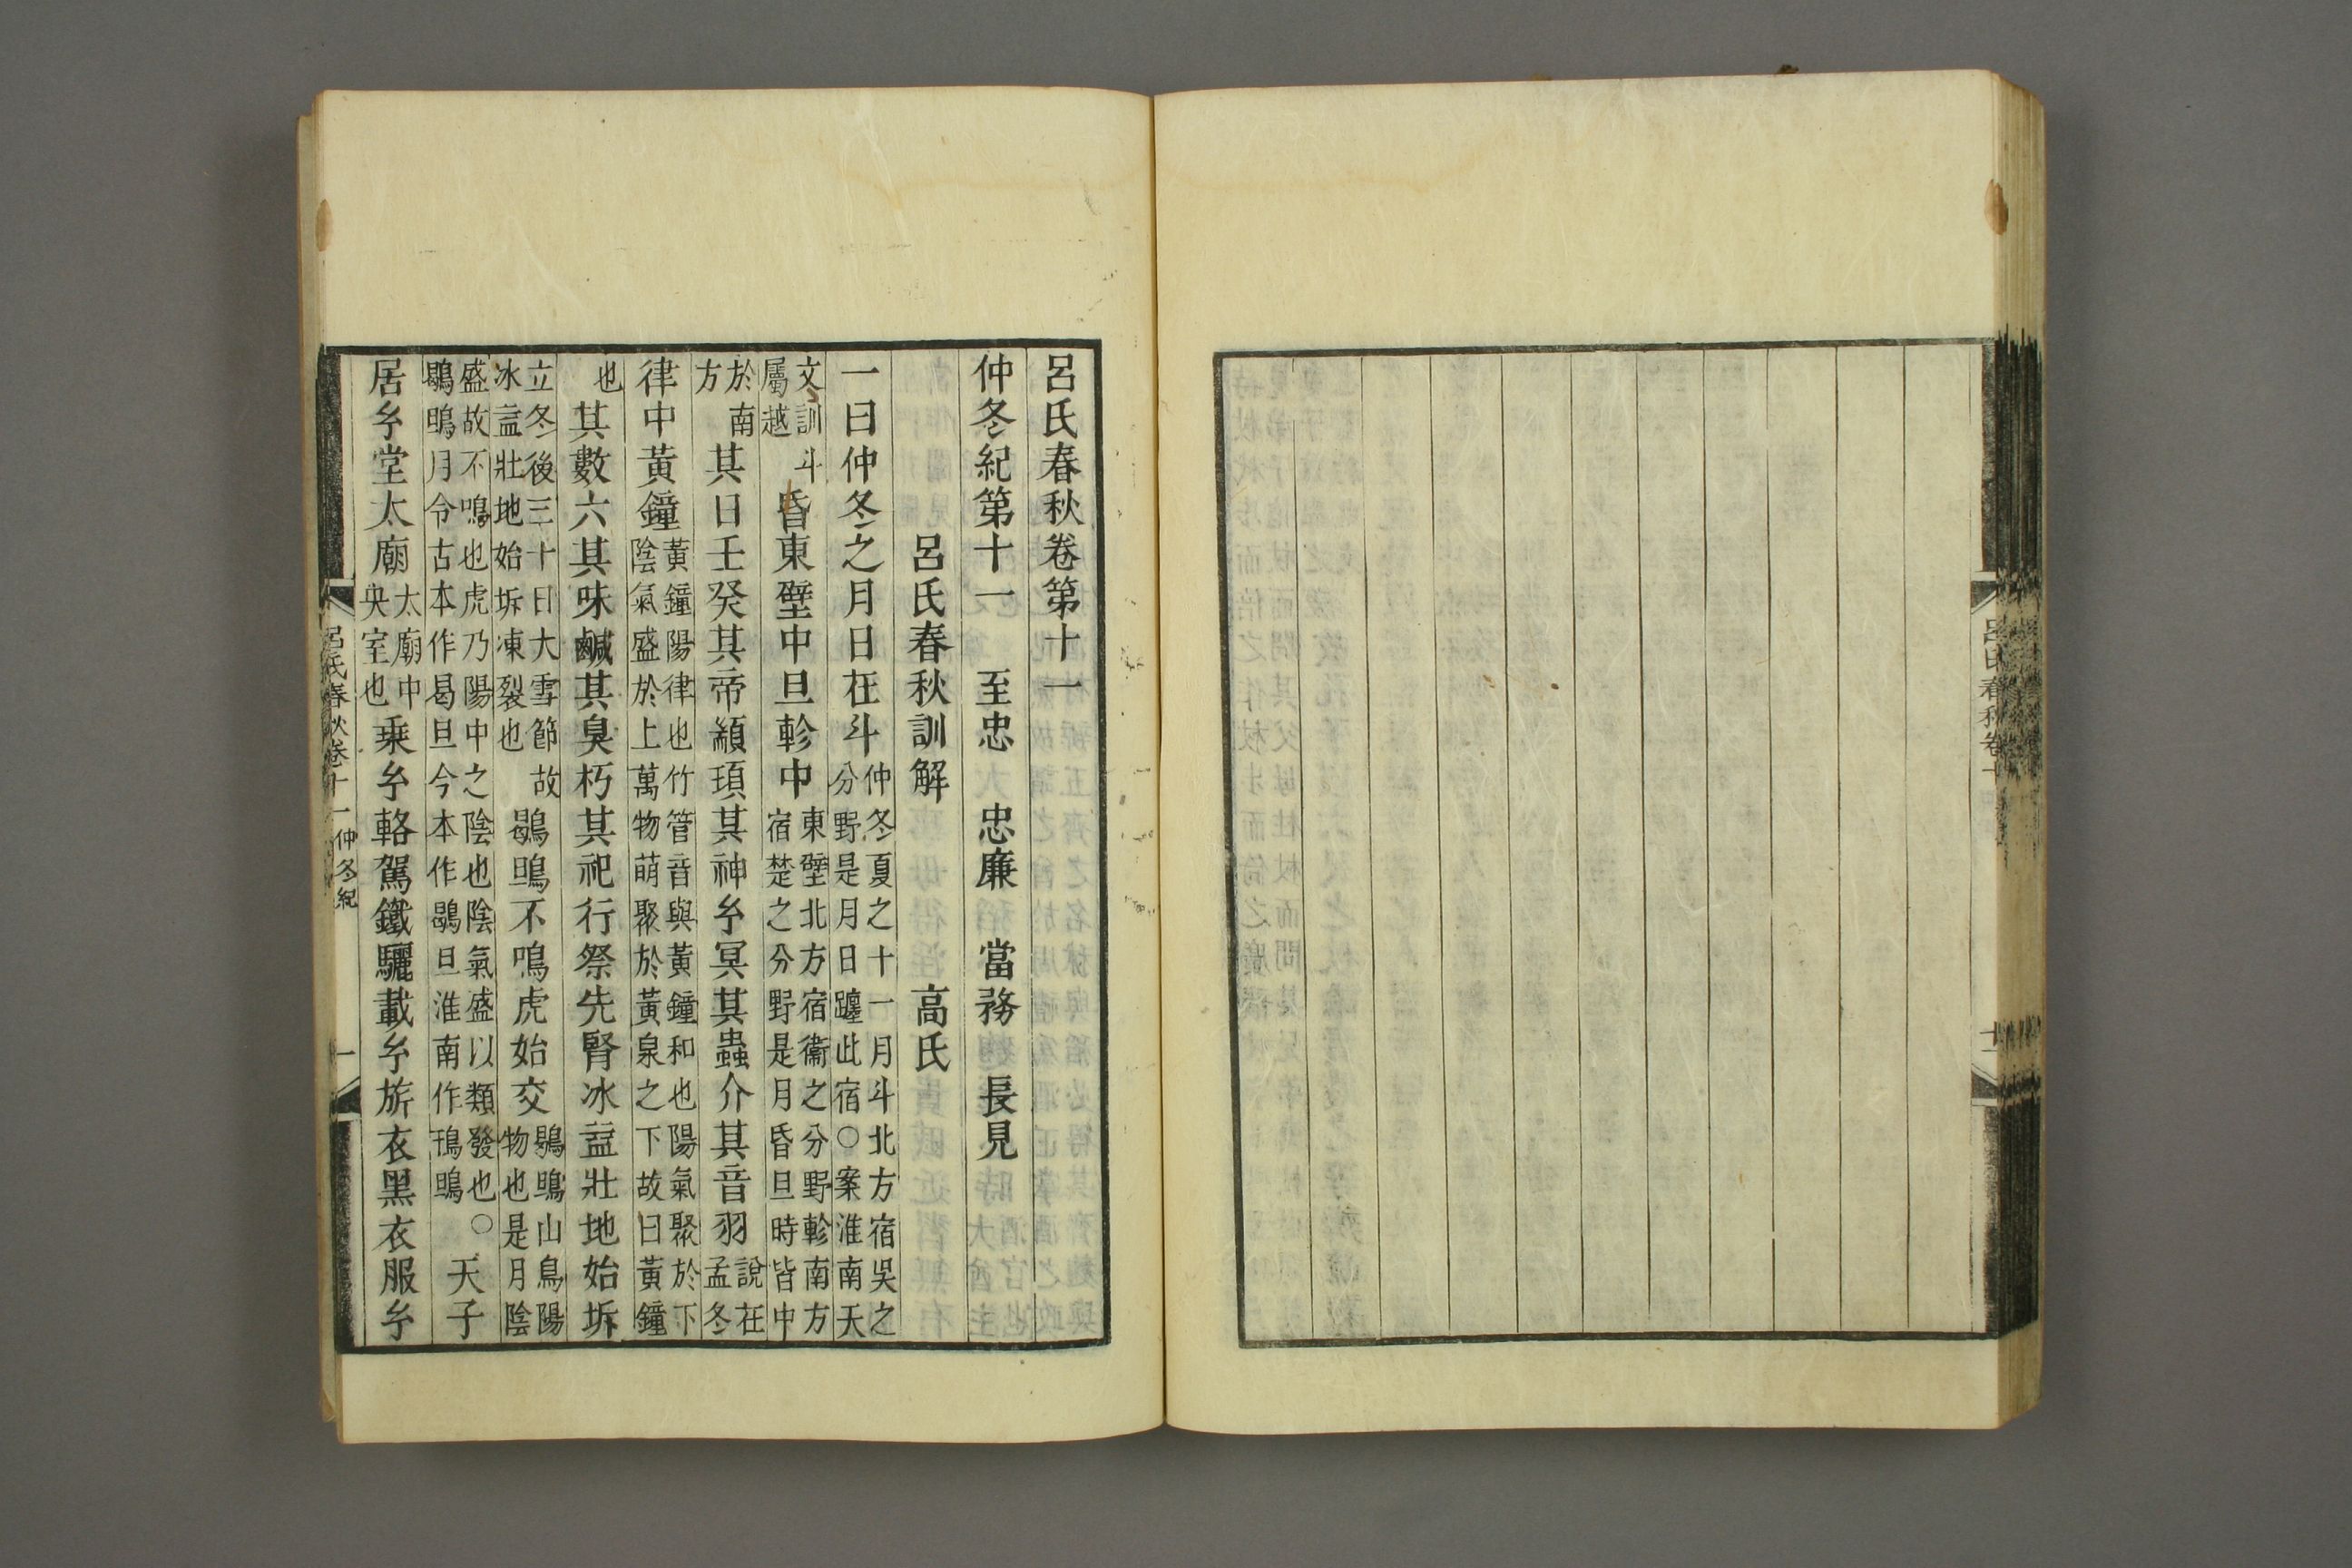 呂氏春秋卷十
呂氏春秋卷第十一
仲冬紀第十一　至忠　忠廉　當務　長見
呂氏春秋訓解　高氏
一曰仲冬之月日在斗仲冬夏之十一月斗北方宿吳之分野是月日躔此宿○案淮南天
文訓斗屬越昏東壁中旦軫中東壁北方宿衞之分野軫南方宿楚之分野是月昏旦時皆中
於南方其日壬癸其帝顓頊其神玄冥其蟲介其音羽說在孟冬
律中黃鐘黃鐘陽律也竹管音與黃鐘和也陽氣聚於下陰氣盛於上萬物萌聚於黃泉之下故曰黃鐘
也其數六其味鹹其臭朽其祀行祭先腎冰益壯地始坼
立冬後三十日大雪節故冰益壯地始坼凍裂也鶡鴠不鳴虎始交鶡鴠山鳥陽物也是月陰
盛故不鳴也虎乃陽中之陰也陰氣盛以類發也○鶡鴠月令古本作曷旦今本作鶡旦淮南作鳱鴠天子
居玄堂太廟太廟中央室也乘玄輅駕鐵驪載玄旂衣黑衣服玄
呂氏春秋卷十一　仲冬紀　一